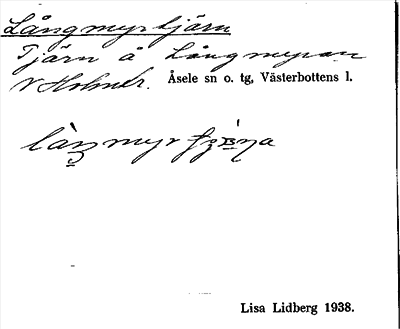 Långmyrtjärn
Tjärn å Långmyran
V Holmtr. Åsele sn o. tg, Västerbottens l.
Lisa Lidberg 1938.